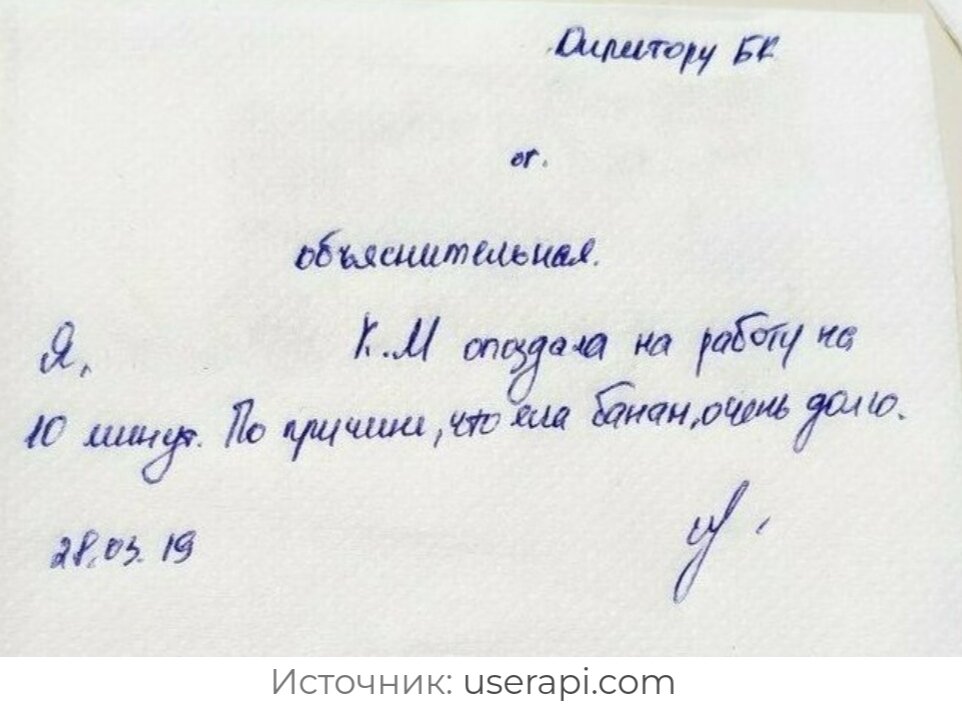 Директору БК
от.
объяснительная.
Я, К.М опоздала на работу на
10 минут. По причине, что ела банан, очень долго.
28.03.19
Источник: userapi.com